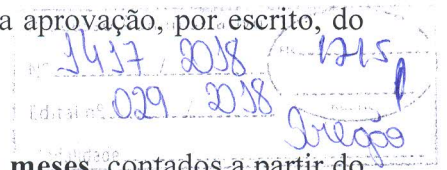 a aprovação, por escrito, do
Nº 1417 / 2018 1215
Edital nº 029 / 2018
Pregão
meses, contados a partir do